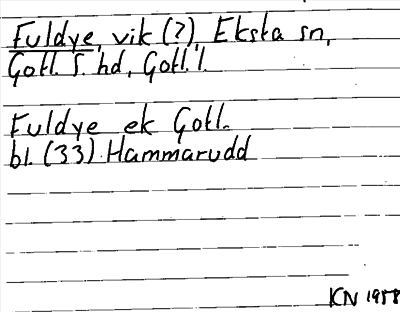 Fuldye, vik (?) Eksta sn,
Gotl. S. hd, Gotl. l.
Fuldye ek Gotl.
bl. (33) Hammarudd
KN 1958